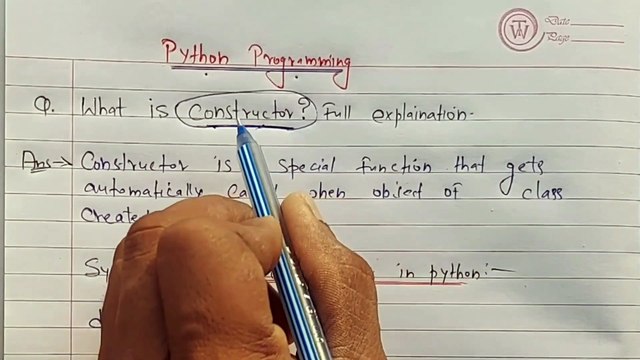 Date
Page
Python Programming
Q. What is Constructor? Full explaination.
Ans→ Constructor is special function that gets
automatically when object of class
Create
in python:-